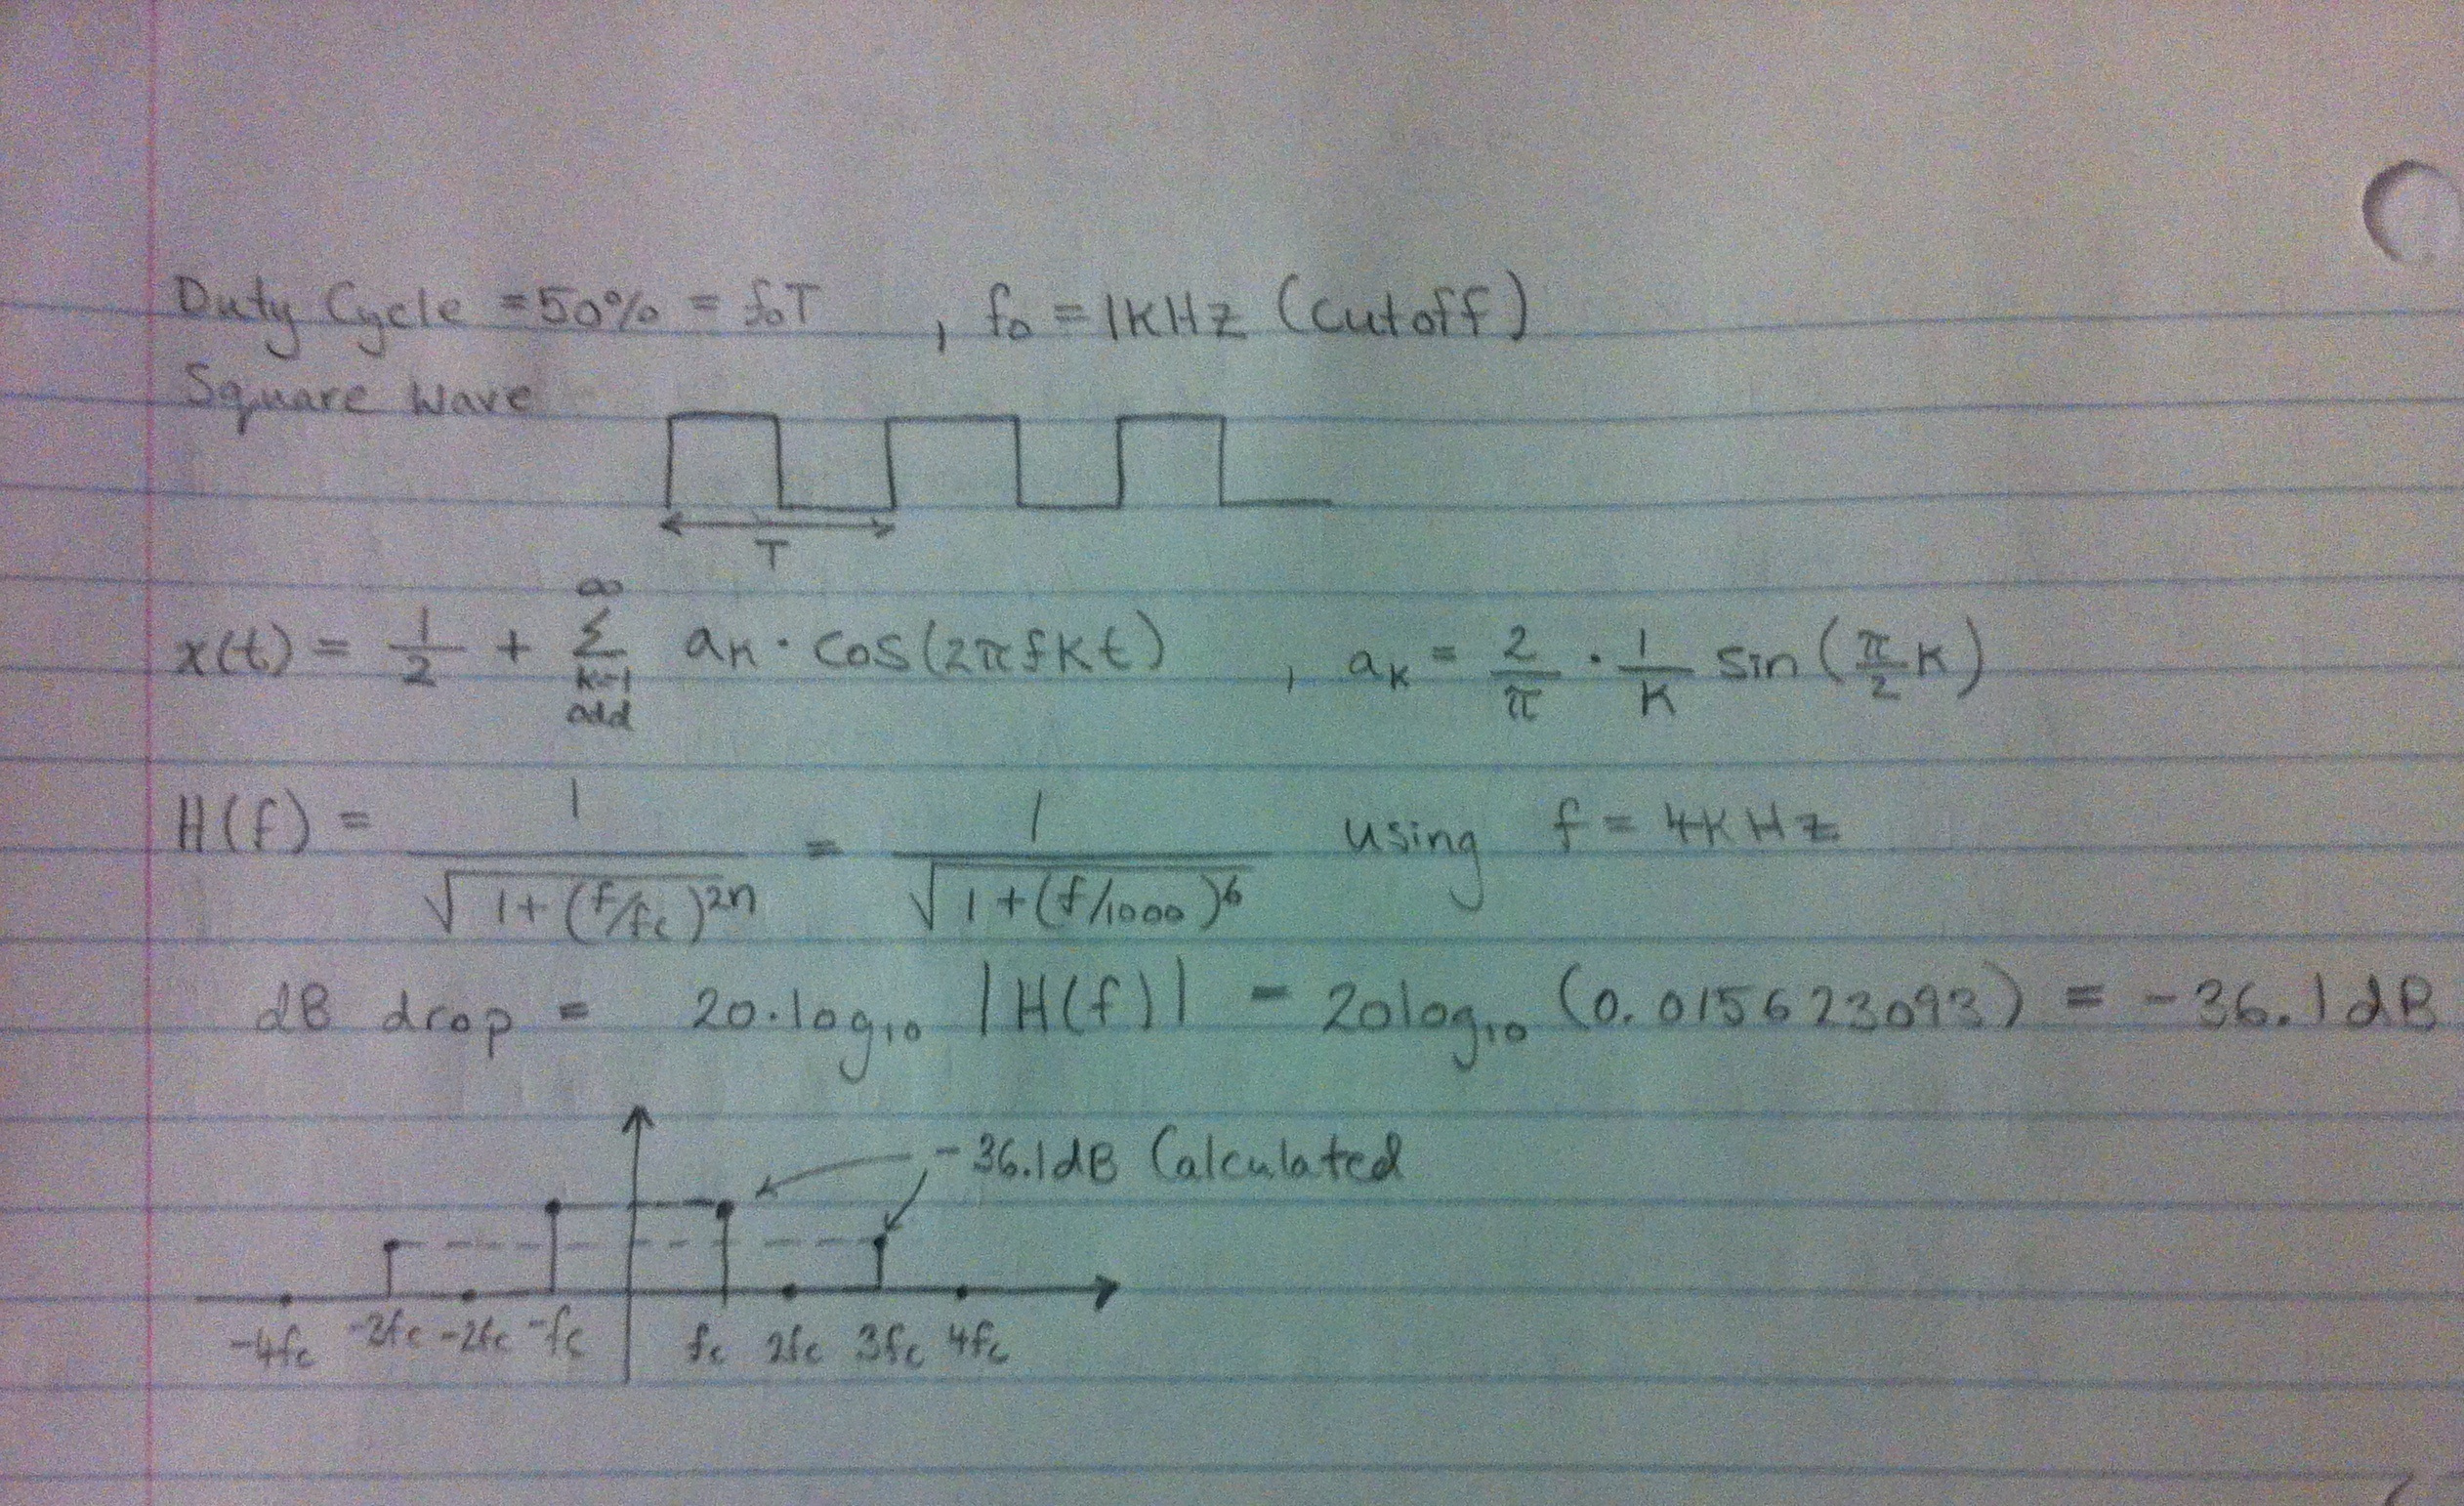 Duty Cycle = 50% = f₀T , f₀ = 1KHz (cutoff)
Square Wave
T
x(t) = 1/2 + ∞ Σ k=1 odd aₖ · cos(2πfkt) , aₖ = 2/π · 1/k sin(π/2 k)
H(f) = 1/√(1+(f/fc)²ⁿ) = 1/√(1+(f/1000)⁶) using f = 4KHz
dB drop = 20·log₁₀ |H(f)| - 20log₁₀ (0.015623093) = -36.1dB
-36.1dB Calculated
-4fc -2fc -2fc -fc fc 2fc 3fc 4fc